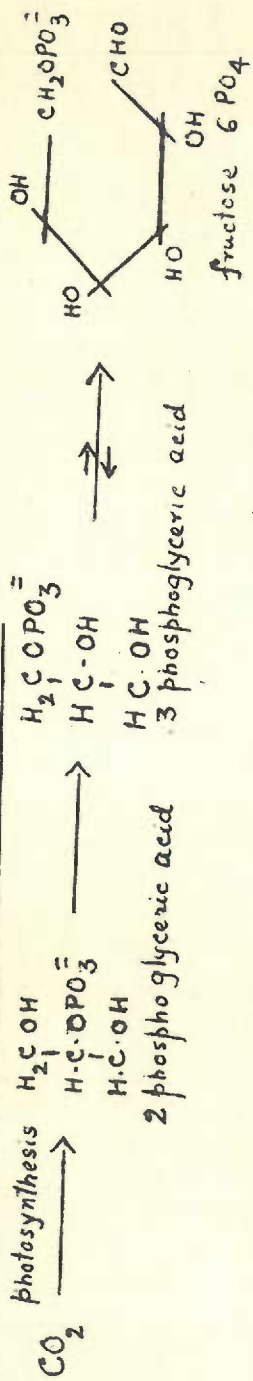 CO₂ photosynthesis
H₂C OH
H·C·OPO₃⁼
H·C·OH
2 phosphoglyceric acid
H₂C OPO₃⁼
HC-OH
HC·OH
3 phosphoglyceric acid
OH
CH₂OPO₃⁼
HO
HO
OH
CHO
fructose 6 PO₄